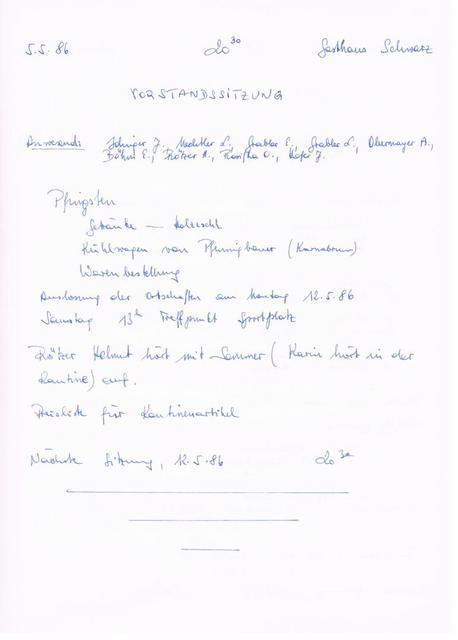 5.5.86 20³⁰ Gasthaus Schwarz
VORSTANDSSITZUNG
Anwesend: J., L., Grabler E., Grabler L., Obermayer A.,
Böhm E., Rötzer H., O., Hofer J.
Pfingsten
Getränke —
Kühlwagen von Pfennigbauer (Karnabrunn)
Warenbestellung
Auslosung der Ortschaften am Montag 12.5.86
Samstag 13ʰ Treffpunkt Sportplatz
Rötzer Helmut hört mit Sommer (Karin hört in der
Kantine) auf.
Preisliste für Kantinenartikel
Nächste Sitzung, 12.5.86 20³⁰